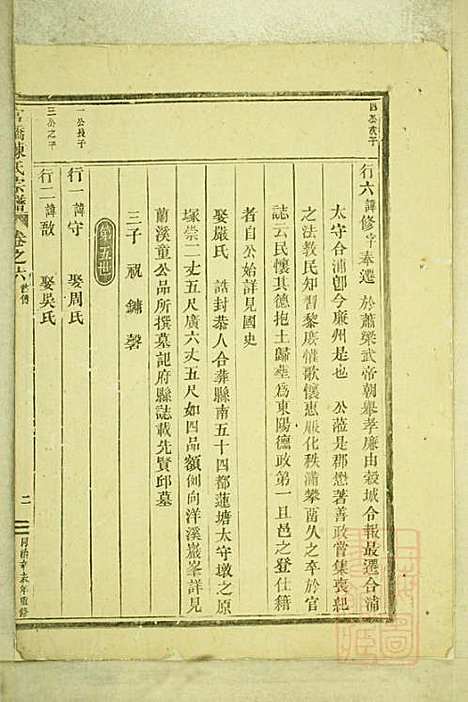 四公次子
行六諱修字奉遷 於蕭梁武帝朝舉孝廉由穀城令報最選合浦
太守合浦卽今廉州是也 公蒞是郡懋著善政嘗集喪紀
之法教民知習黎庶惜歌懷惠服化秩滿攀留久之卒於官
誌云民懷其德抱土歸塟爲東陽德政第一且邑之登仕籍
者自公始詳見國史
娶嚴氏 誥封恭人合葬縣南五十四都蓮塘太守墩之原
塚崇二丈五尺廣六丈五尺如四品額倒向洋溪巖峯詳見
蘭溪童公品所撰墓記府縣誌載先賢邱墓
三子 祝 鏞 磬
第五世
一公長子
行一 諱守 娶周氏
三公之子
行二 諱敔 娶吳氏
橋陳氏宗譜 卷之六 世傳 二